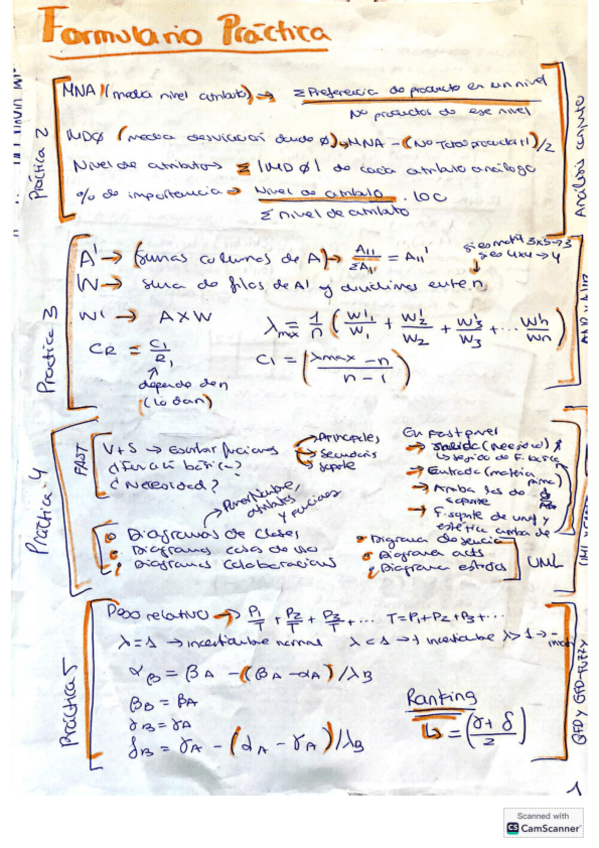 Formulario Práctica
Práctica 2
MNA (media nivel atributo) → Σ Preferencia de producto en un nivel
No productos de ese nivel
IMDØ (media desviación dando Ø) → MNA - (No Total productos+1)/2
Nivel de atributos → Σ |MDØ| de cada atributo análogo
% de importancia → Nivel de atributo . 100
Σ nivel de atributo
Análisis conjunto
Práctica 3
A' → (sumas columnas de A) → A11 / ΣA11 = A11'
si es matriz 3x3 → 3
si es 4x4 → 4
W → suma de filas de A' y dividimos entre n
W' → A X W
λmax = 1/n (W1'/W1 + W2'/W2 + W3'/W3 + ... Wn'/Wn)
CR = C1/R1
C1 = (λmax - n / n - 1)
depende de n
(lo dan)
Práctica 4
FAST
V+S → Escribir funciones → Principales
→ Secundarias
→ Soporte
¿Función básica?
¿Necesidad?
En Fast poner
→ Salida (necesidad) y
→ Entrada (materia prima)
→ Arriba las de soporte
→ F. soporte de unef y
estética arriba de
Poner Nombre,
atributos
y funciones
Diagramas de Clases
Diagramas casos de uso
Diagramas Colaboraciones
Diagrama de secuencia
Diagrama acts
Diagrama estados
UML
Práctica 5
Peso relativo → P1/T + P2/T + P3/T + ... T=P1+P2+P3+...
λ=1 → incertidumbre normal λ<1 → ↓ incertidumbre λ>1 →
αB = βA - (βA - αA)/λB
βB = βA
γB = γA
δB = γA - (δA - γA)/λB
Ranking
↳ = (γ + δ / 2)
QFD y QFD-FUZZY
1
Scanned with
CS CamScanner